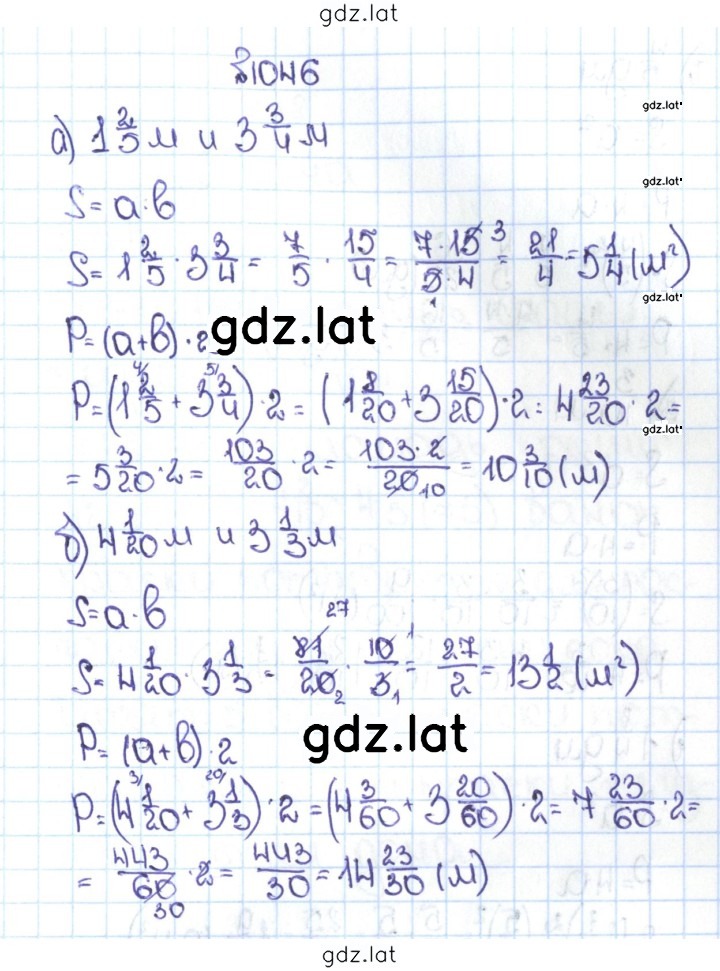 gdz.lat
№1046
gdz.lat
а) 1 2/5 м и 3 3/4 м
gdz.lat
S = a · b
S = 1 2/5 · 3 3/4 = 7/5 · 15/4 = 7 · 15 3/5 1 · 4 = 21/4 = 5 1/4 (м²)
gdz.lat
P = (a + b) · 2
gdz.lat
P = (1 2/5 4/ + 3 3/4 5/) · 2 = (1 8/20 + 3 15/20) · 2 = 4 23/20 · 2 =
gdz.lat
= 5 3/20 · 2 = 103/20 · 2 = 103 · 2/20 10 = 10 3/10 (м)
б) 4 1/20 м и 3 1/3 м
S = a · b
S = 4 1/20 · 3 1/3 = 81 27/20 2 · 10 1/3 1 = 27/2 = 13 1/2 (м²)
P = (a + b) · 2
gdz.lat
P = (4 1/20 3/ + 3 1/3 20/) · 2 = (4 3/60 + 3 20/60) · 2 = 7 23/60 · 2 =
= 443/60 30 · 2 = 443/30 = 14 23/30 (м)
gdz.lat